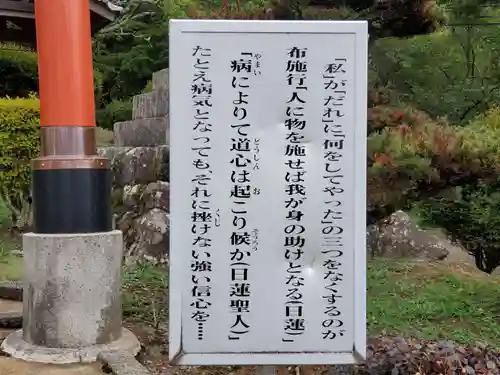 「私」が「だれ」に、「何をしてやった」の三つをなくするのが
布施行「人に物を施せば我が身の助けとなる(日蓮)」
「病によりて道心は起こり候か(日蓮聖人)」
やまい
どうしん
お
そうろう
たとえ病気となっても、それに挫けない強い信心を……
くじ